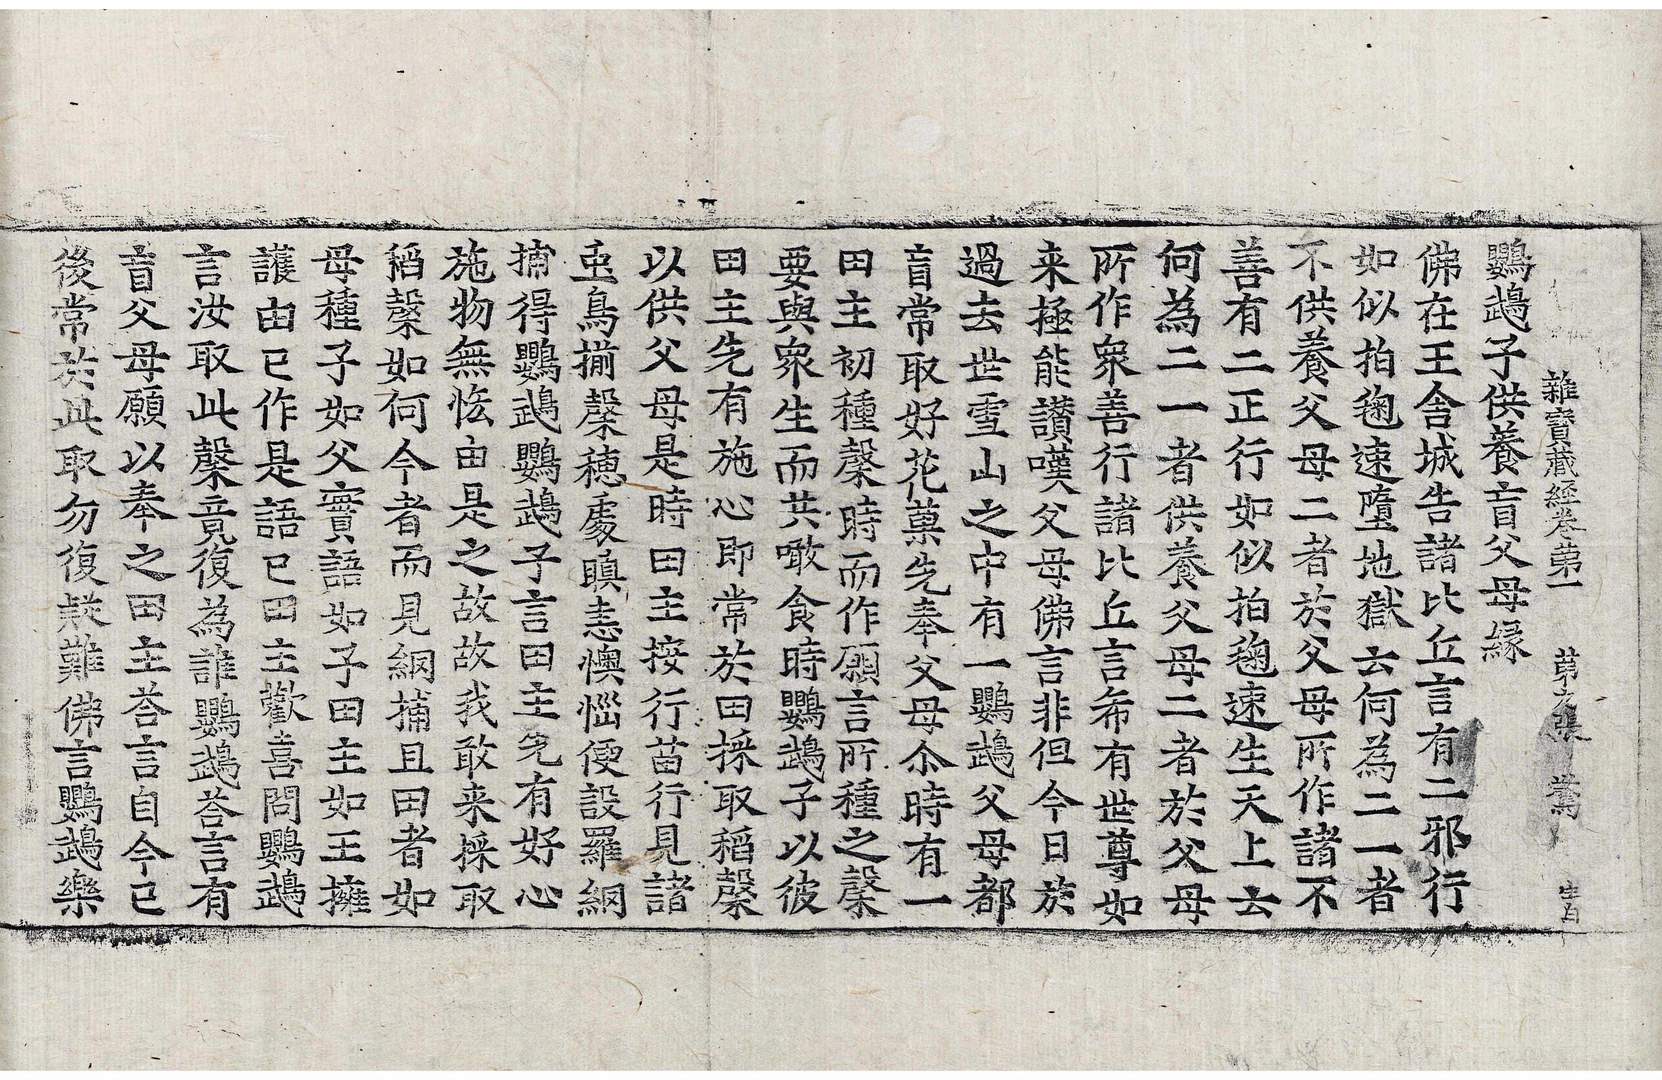 雜寶藏經卷第一 第九張 驚
鸚鵡子供養盲父母縁
佛在王舍城告諸比丘言有二邪行
如似拍毱速墮地獄云何為二一者
不供養父母二者於父母所作諸不
善有二正行如似拍毱速生天上云
何為二一者供養父母二者於父母
所作衆善行諸比丘言希有世尊如
来極能讃嘆父母佛言非但今日於
過去世雪山之中有一鸚鵡父母都
盲常取好花菓先奉父母尒時有一
田主初種糓時而作願言所種之糓
要與衆生而共噉食時鸚鵡子以彼
田主先有施心即常於田採取稻糓
以供父母是時田主按行苗行見諸
䖝鳥揃糓穂處瞋恚懊惱便設羅網
捕得鸚鵡鸚鵡子言田主先有好心
施物無恡由是之故故我敢来採取
稻糓如何今者而見網捕且田者如
母種子如父實語如子田主如王擁
護由己作是語已田主歡喜問鸚鵡
言汝取此糓竟復為誰鸚鵡荅言有
盲父母願以奉之田主荅言自今已
後常於此取勿復疑難佛言鸚鵡樂